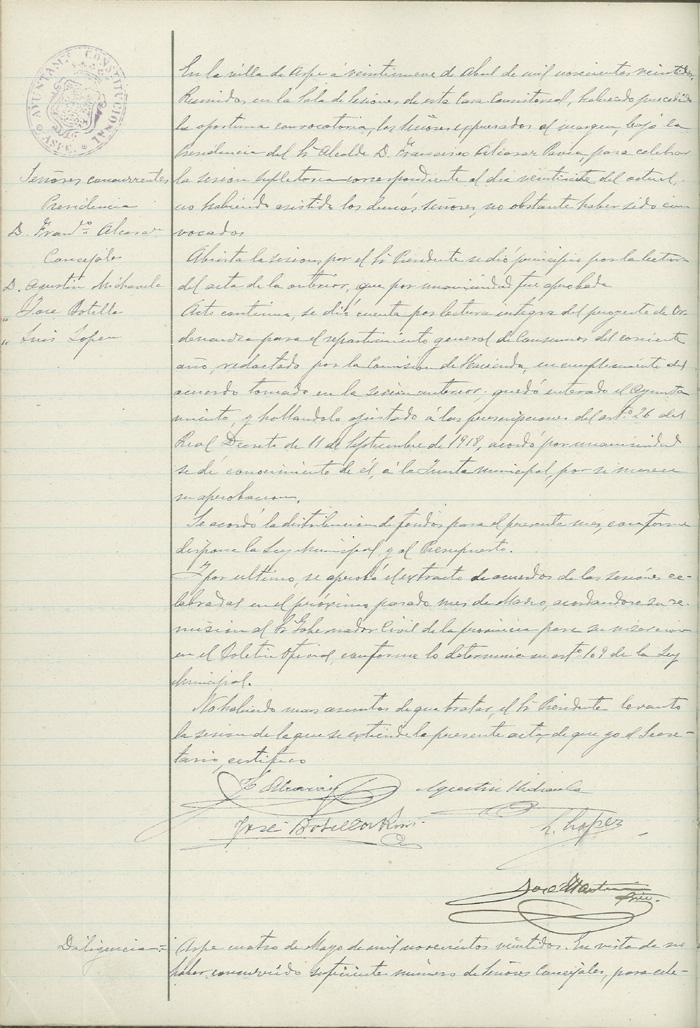 AYUNTAM.º CONSTITUCIONAL
ASPE
Señores concurrentes
Presidencia
D. Fran.co Alcaraz
Concejales
D. Agustín Mirambell
" José Botella
" Luis López
En la villa de Aspe á veintinueve de Abril de mil novecientos veintidos.
Reunidos en la Sala de Sesiones de esta Casa Consistorial, habiendo precedido
la oportuna convocatoria, los Señores expresados al margen, bajo la
Presidencia del Sr. Alcalde D. Francisco Alcaraz Pavía, para celebrar
la sesión supletoria correspondiente al día veintisiete del actual,
no habiendo asistido los demas señores, no obstante haber sido con-
vocados
Abierta la sesion, por el Sr. Presidente se dió principio por la lectura
del acta de la anterior, que por unanimidad fue aprobada
Acto continuo, se dió cuenta por lectura integra del proyecto de Or-
denanza para el repartimiento general de Consumos del corriente
año, redactado por la Comision de Hacienda, en cumplimiento del
acuerdo tomado en la sesion anterior; quedó enterado el Ayunta-
miento, y hallandola ajustado á las prescripciones del art.º 26 del
Real Decreto de 11 de Septiembre de 1918, acordó por unanimidad
se dé conocimiento de él, á la Junta municipal, por si merece
su aprobacion.
Se acordó la distribucion de fondos para el presente mes, conforme
dispone la Ley Municipal y el Presupuesto.
Y por ultimo, se aprobó el extracto de acuerdos de las sesiones ce-
lebradas en el próximo pasado mes de Marzo, acordandose su re-
mision al Sr. Gobernador Civil de la provincia para su insercion
en el Boletin Oficial, conforme lo determina su art.º 109 de la Ley
Municipal.
No habiendo mas asuntos de que tratar, el Sr. Presidente levantó
la sesion de la que se extiende la presente acta, de que yo el Secre-
tario, certifico
F. Alcaraz
Agustín
José Botella
L. López
José
Diligencia =
Aspe cuatro de Mayo de mil novecientos veintidos. En vista de no
haber concurrido suficiente número de Señores Concejales, para cele-